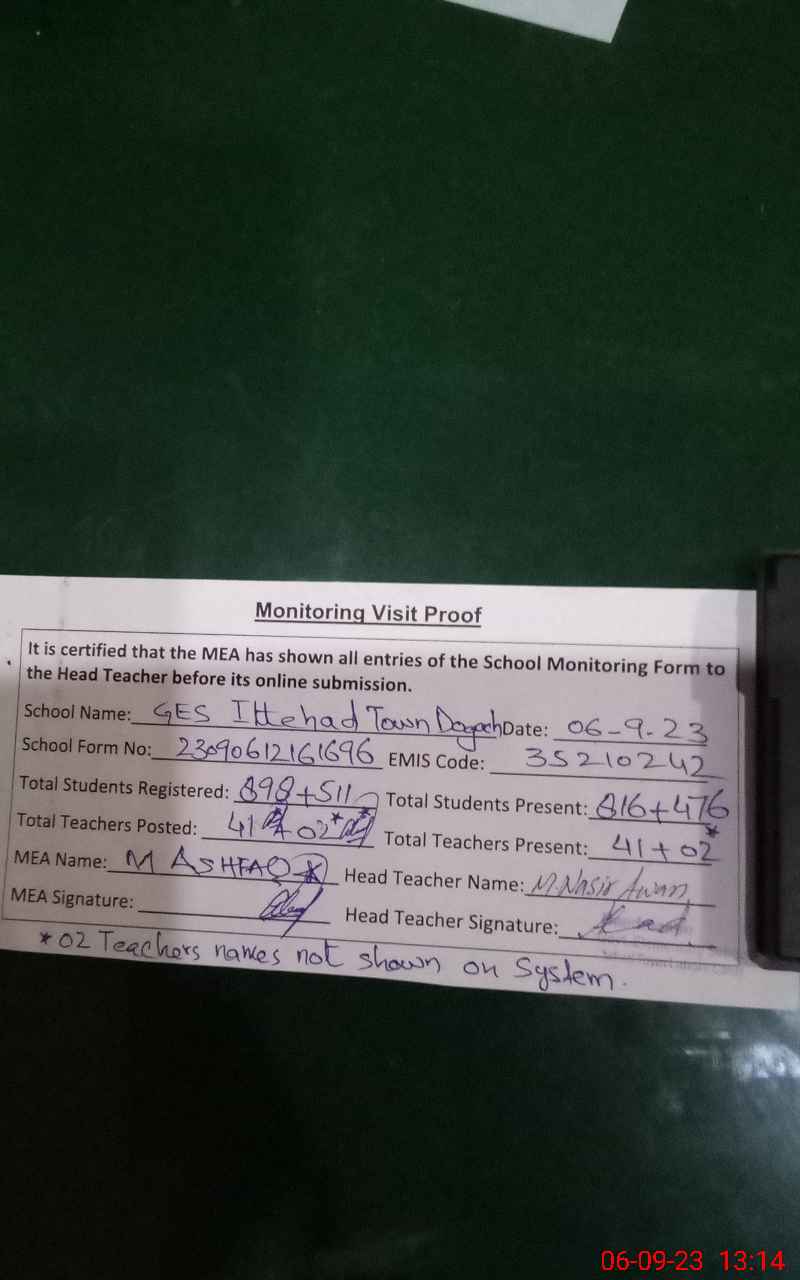 Monitoring Visit Proof
It is certified that the MEA has shown all entries of the School Monitoring Form to
the Head Teacher before its online submission.
School Name: GES Ittehad Town Dogach Date: 06-9-23
School Form No: 23090612161696 EMIS Code: 35210242
Total Students Registered: 898+511 Total Students Present: 816+476
Total Teachers Posted: 41 + 02* Total Teachers Present: 41+02*
MEA Name: M ASHFAQ Head Teacher Name: M. Nasir Awan
MEA Signature: Head Teacher Signature:
*02 Teachers names not shown on System.
06-09-23 13:14